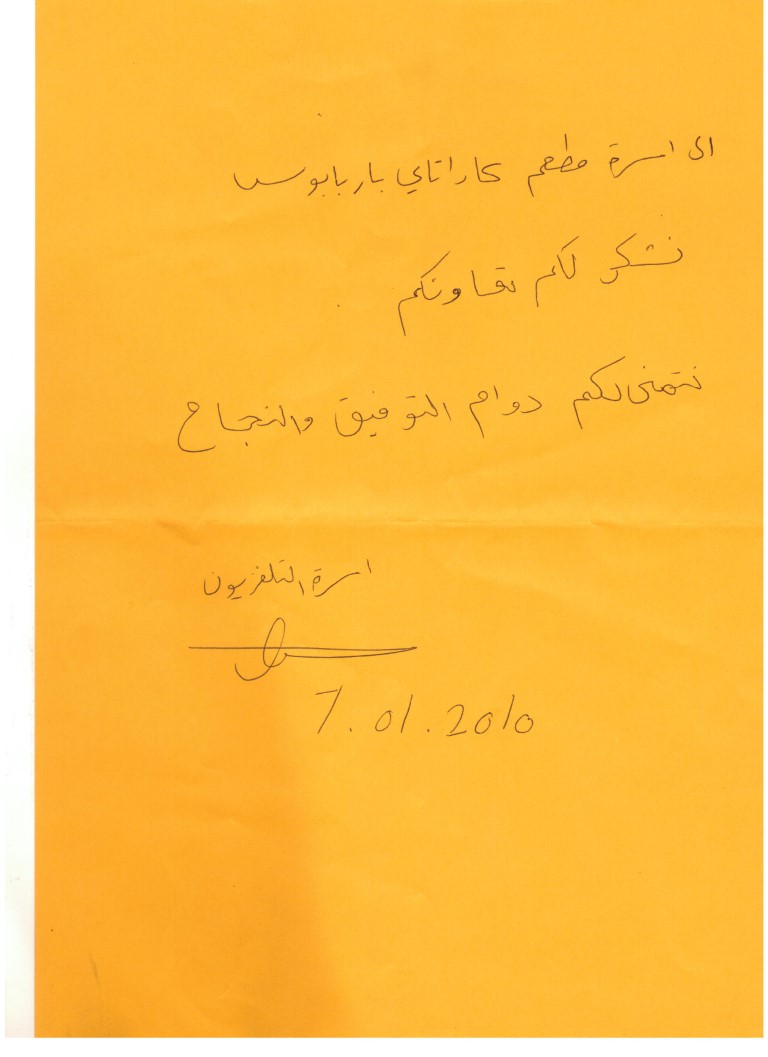 الى اسرة مطعم كاراتاي باربابوس
نشكر لكم تعاونكم
نتمنى لكم دوام التوفيق والنجاح
اسرة التلفزيون
7.01.2010